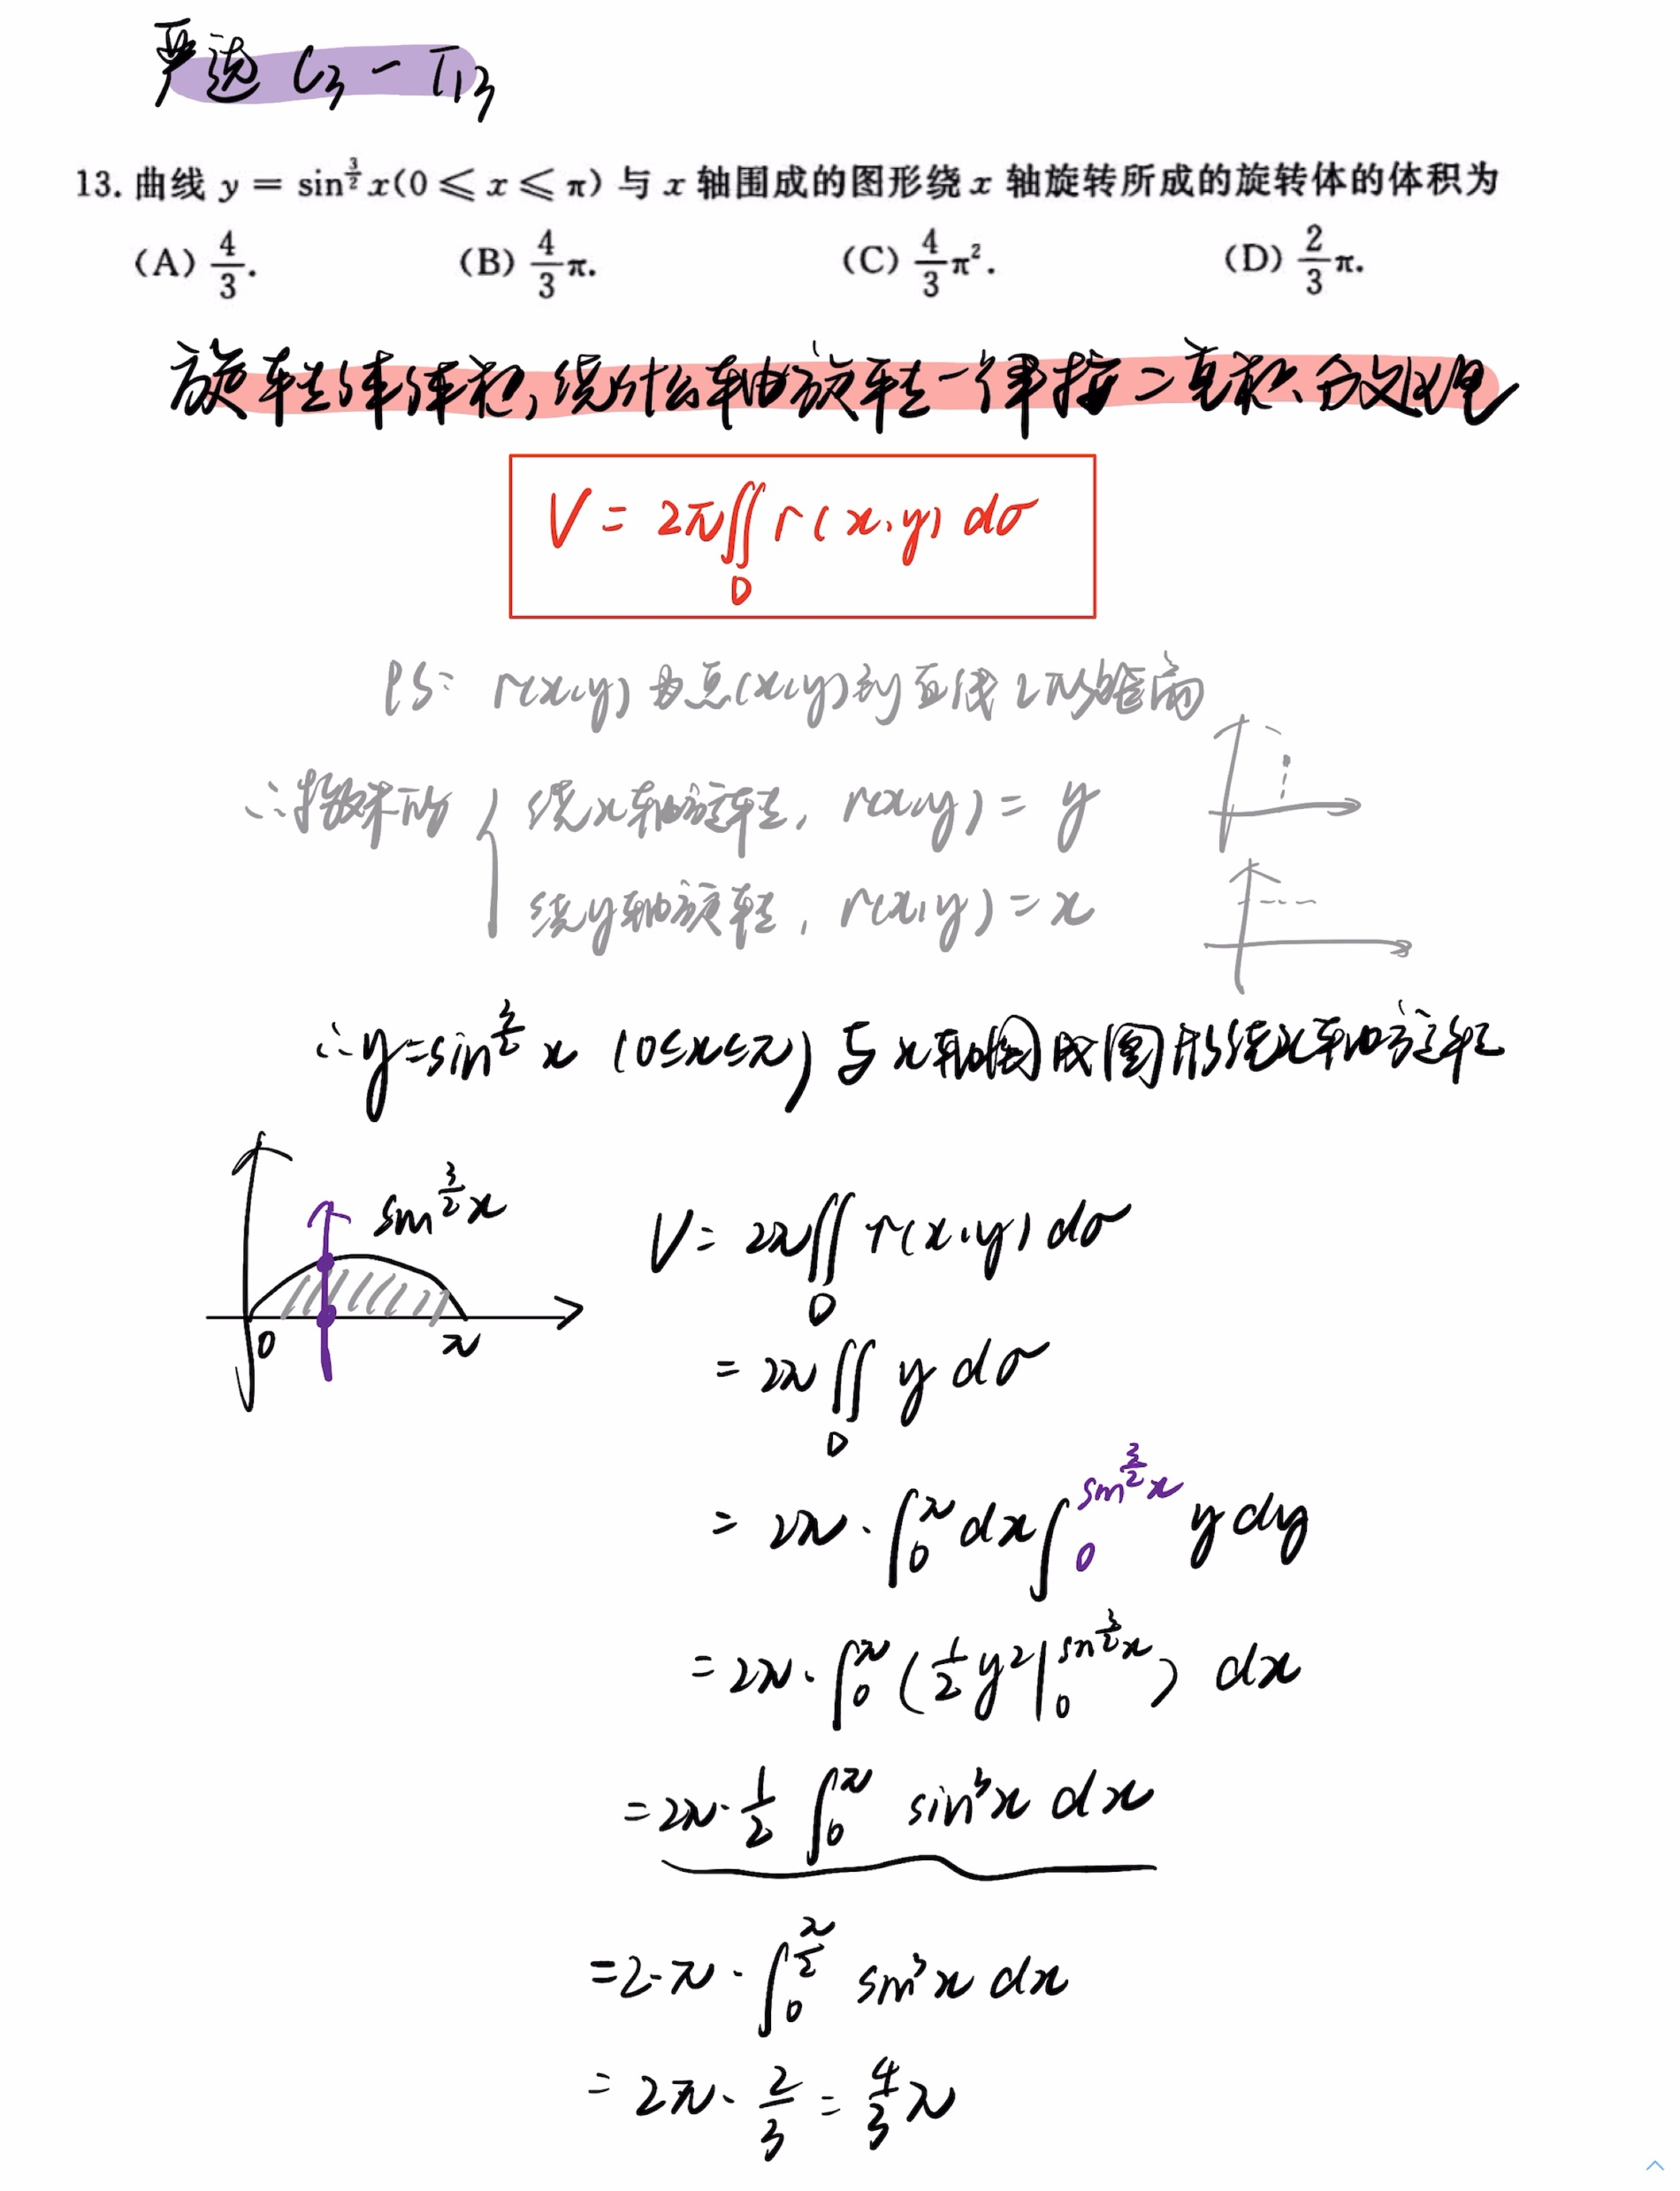 严选 C3 - T13
13. 曲线 y = sin^{3/2} x(0 ⩽ x ⩽ π) 与 x 轴围成的图形绕 x 轴旋转所成的旋转体的体积为
(A) 4/3. (B) 4/3 π. (C) 4/3 π². (D) 2/3 π.
旋转体体积,绕什么轴旋转一律按二重积分处理
V = 2π∬_D r(x,y) dσ
PS: r(x,y) 为点(x,y)到直线 的距离
∴ 绕x轴旋转, r(x,y) = y
绕y轴旋转, r(x,y) = x
∴ y=sin^{3/2} x (0≤x≤π) 与 x轴围成图形绕x轴旋转
sin^{3/2} x
0 π
V = 2π∬_D r(x,y) dσ
= 2π∬_D y dσ
= 2π · ∫_0^π dx ∫_0^{sin^{3/2} x} y dy
= 2π · ∫_0^π (1/2 y² |_0^{sin^{3/2} x}) dx
= 2π · 1/2 ∫_0^π sin³x dx
= 2·π · ∫_0^{π/2} sin³x dx
= 2π · 2/3 = 4/3 π